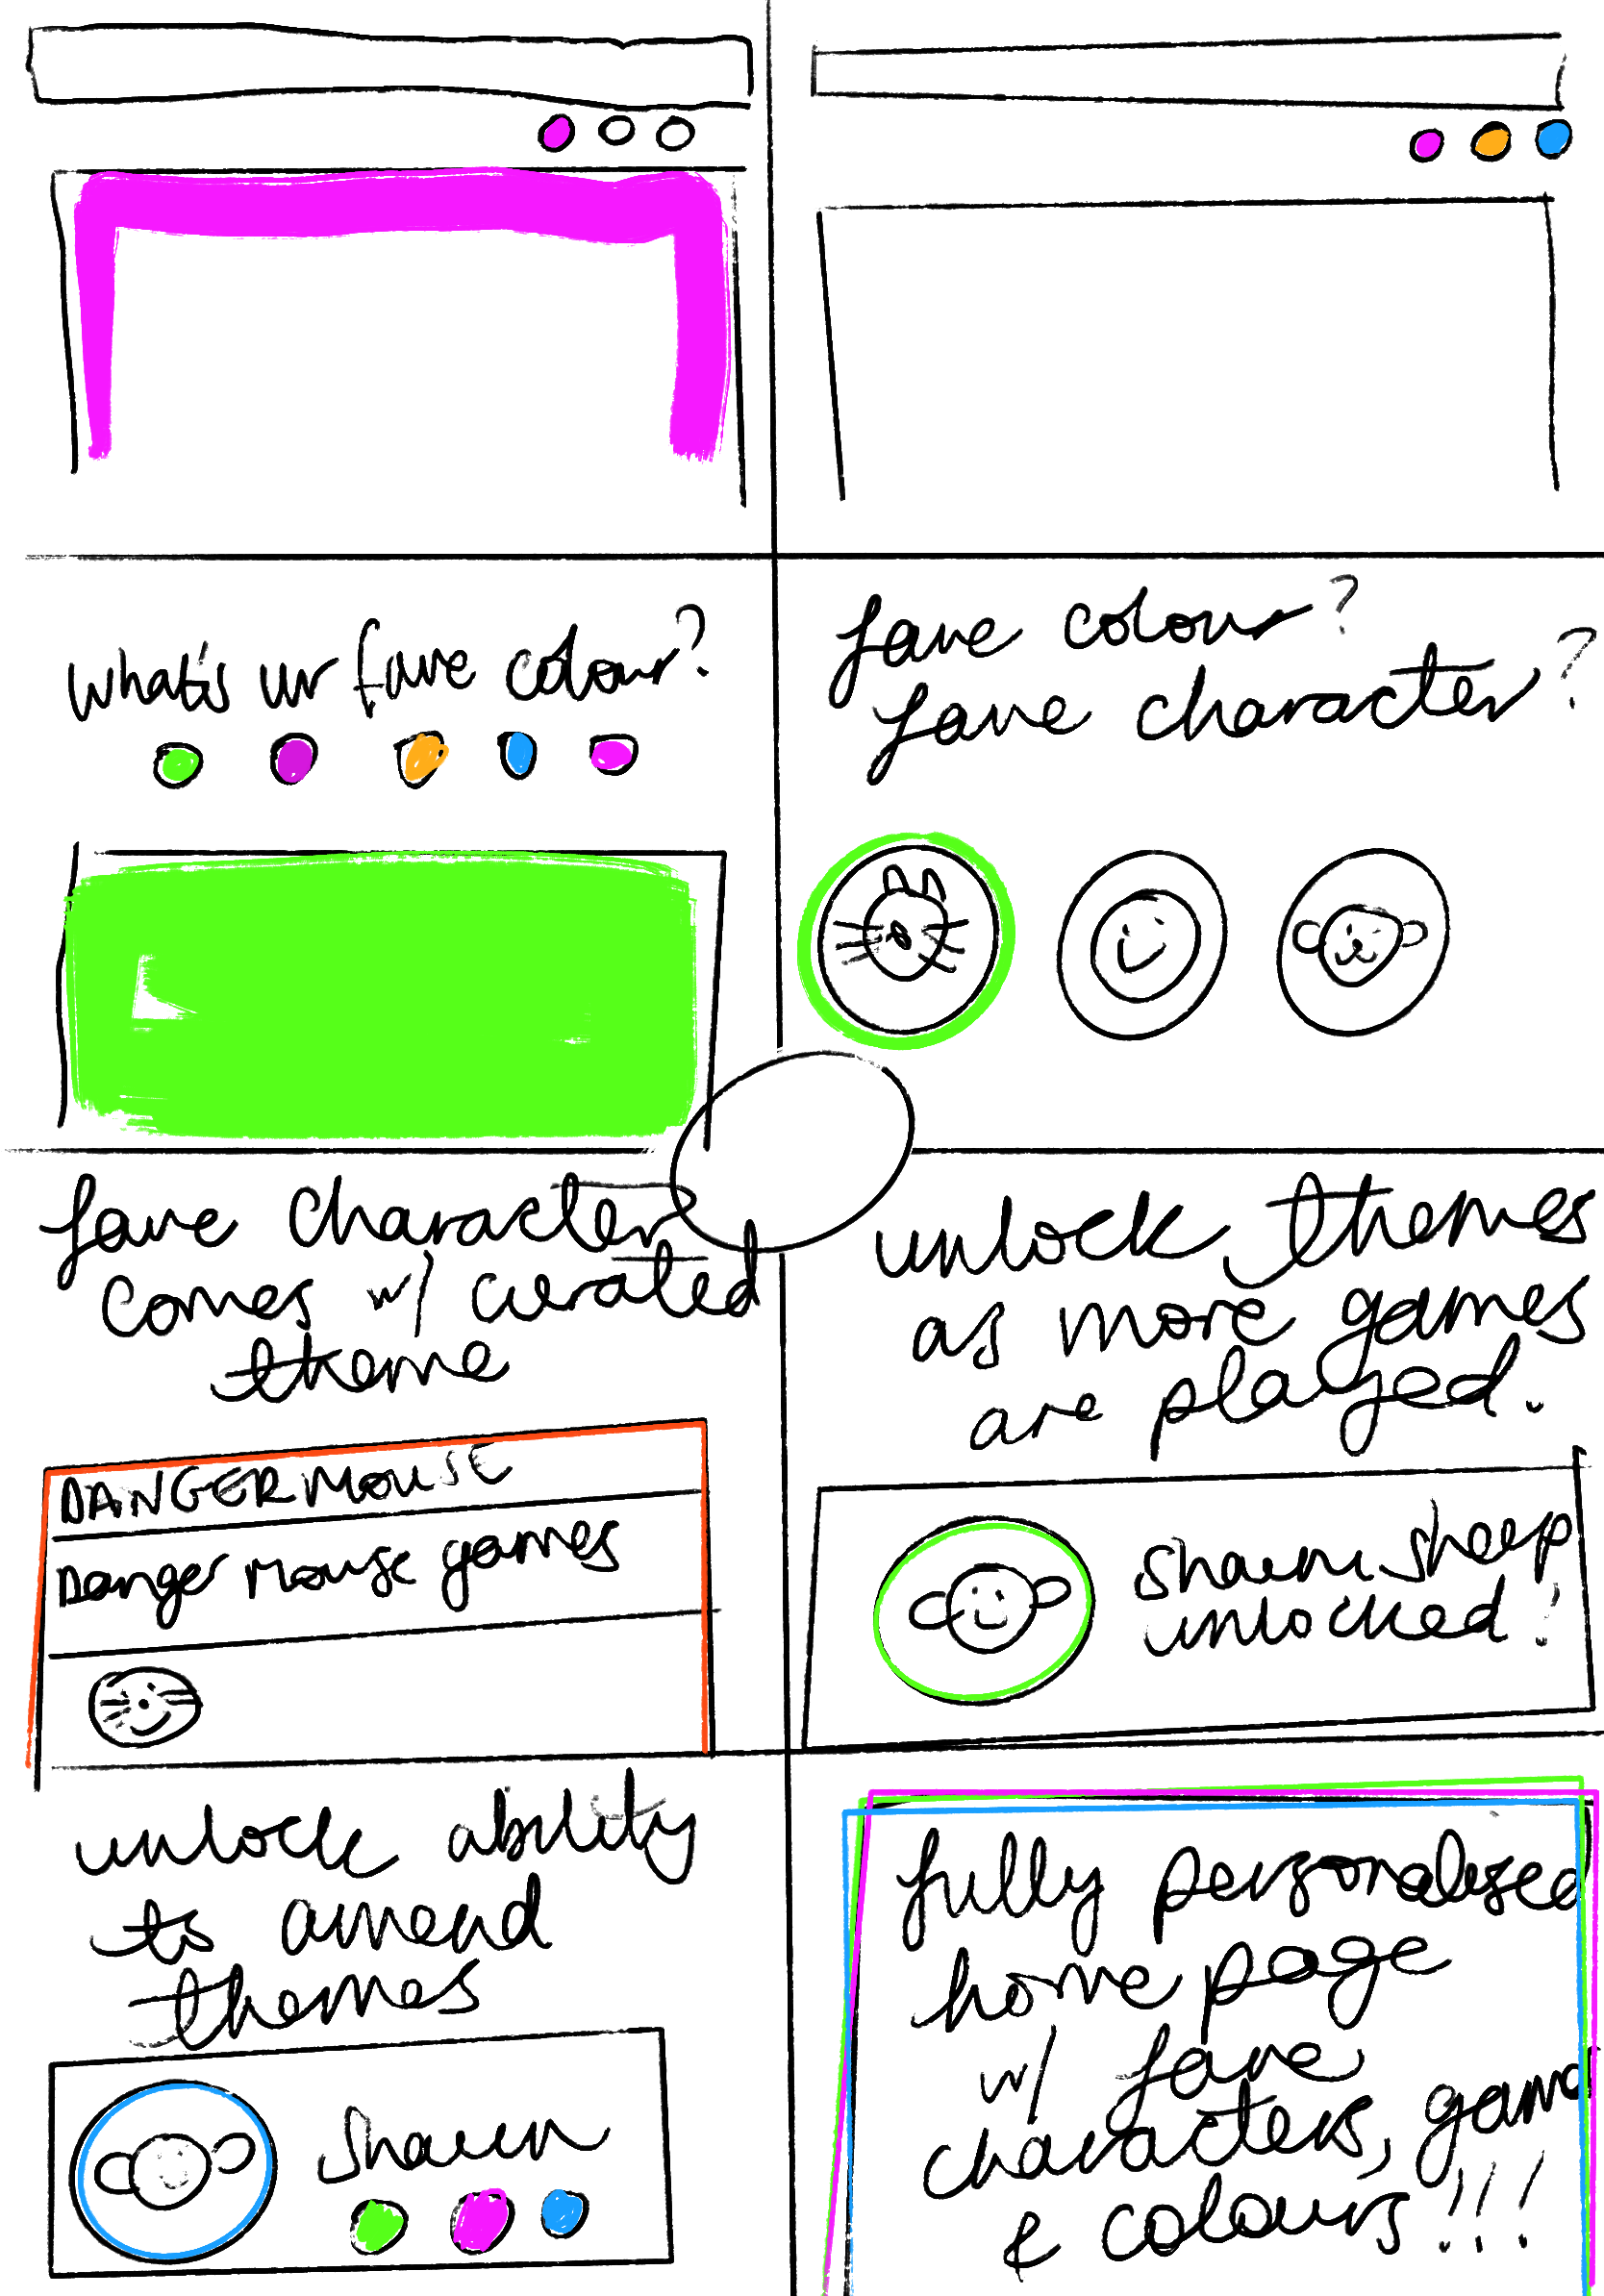 what's ur fave colour?
fave colour?
fave character?
fave character
comes w/ curated
theme
DANGERMOUSE
Danger mouse games
unlock themes
as more games
are played.
Shaun sheep
unlocked!
unlock ability
to amend
themes
Shaun
fully personalised
home page
w/ fave
characters, game
& colours!!!